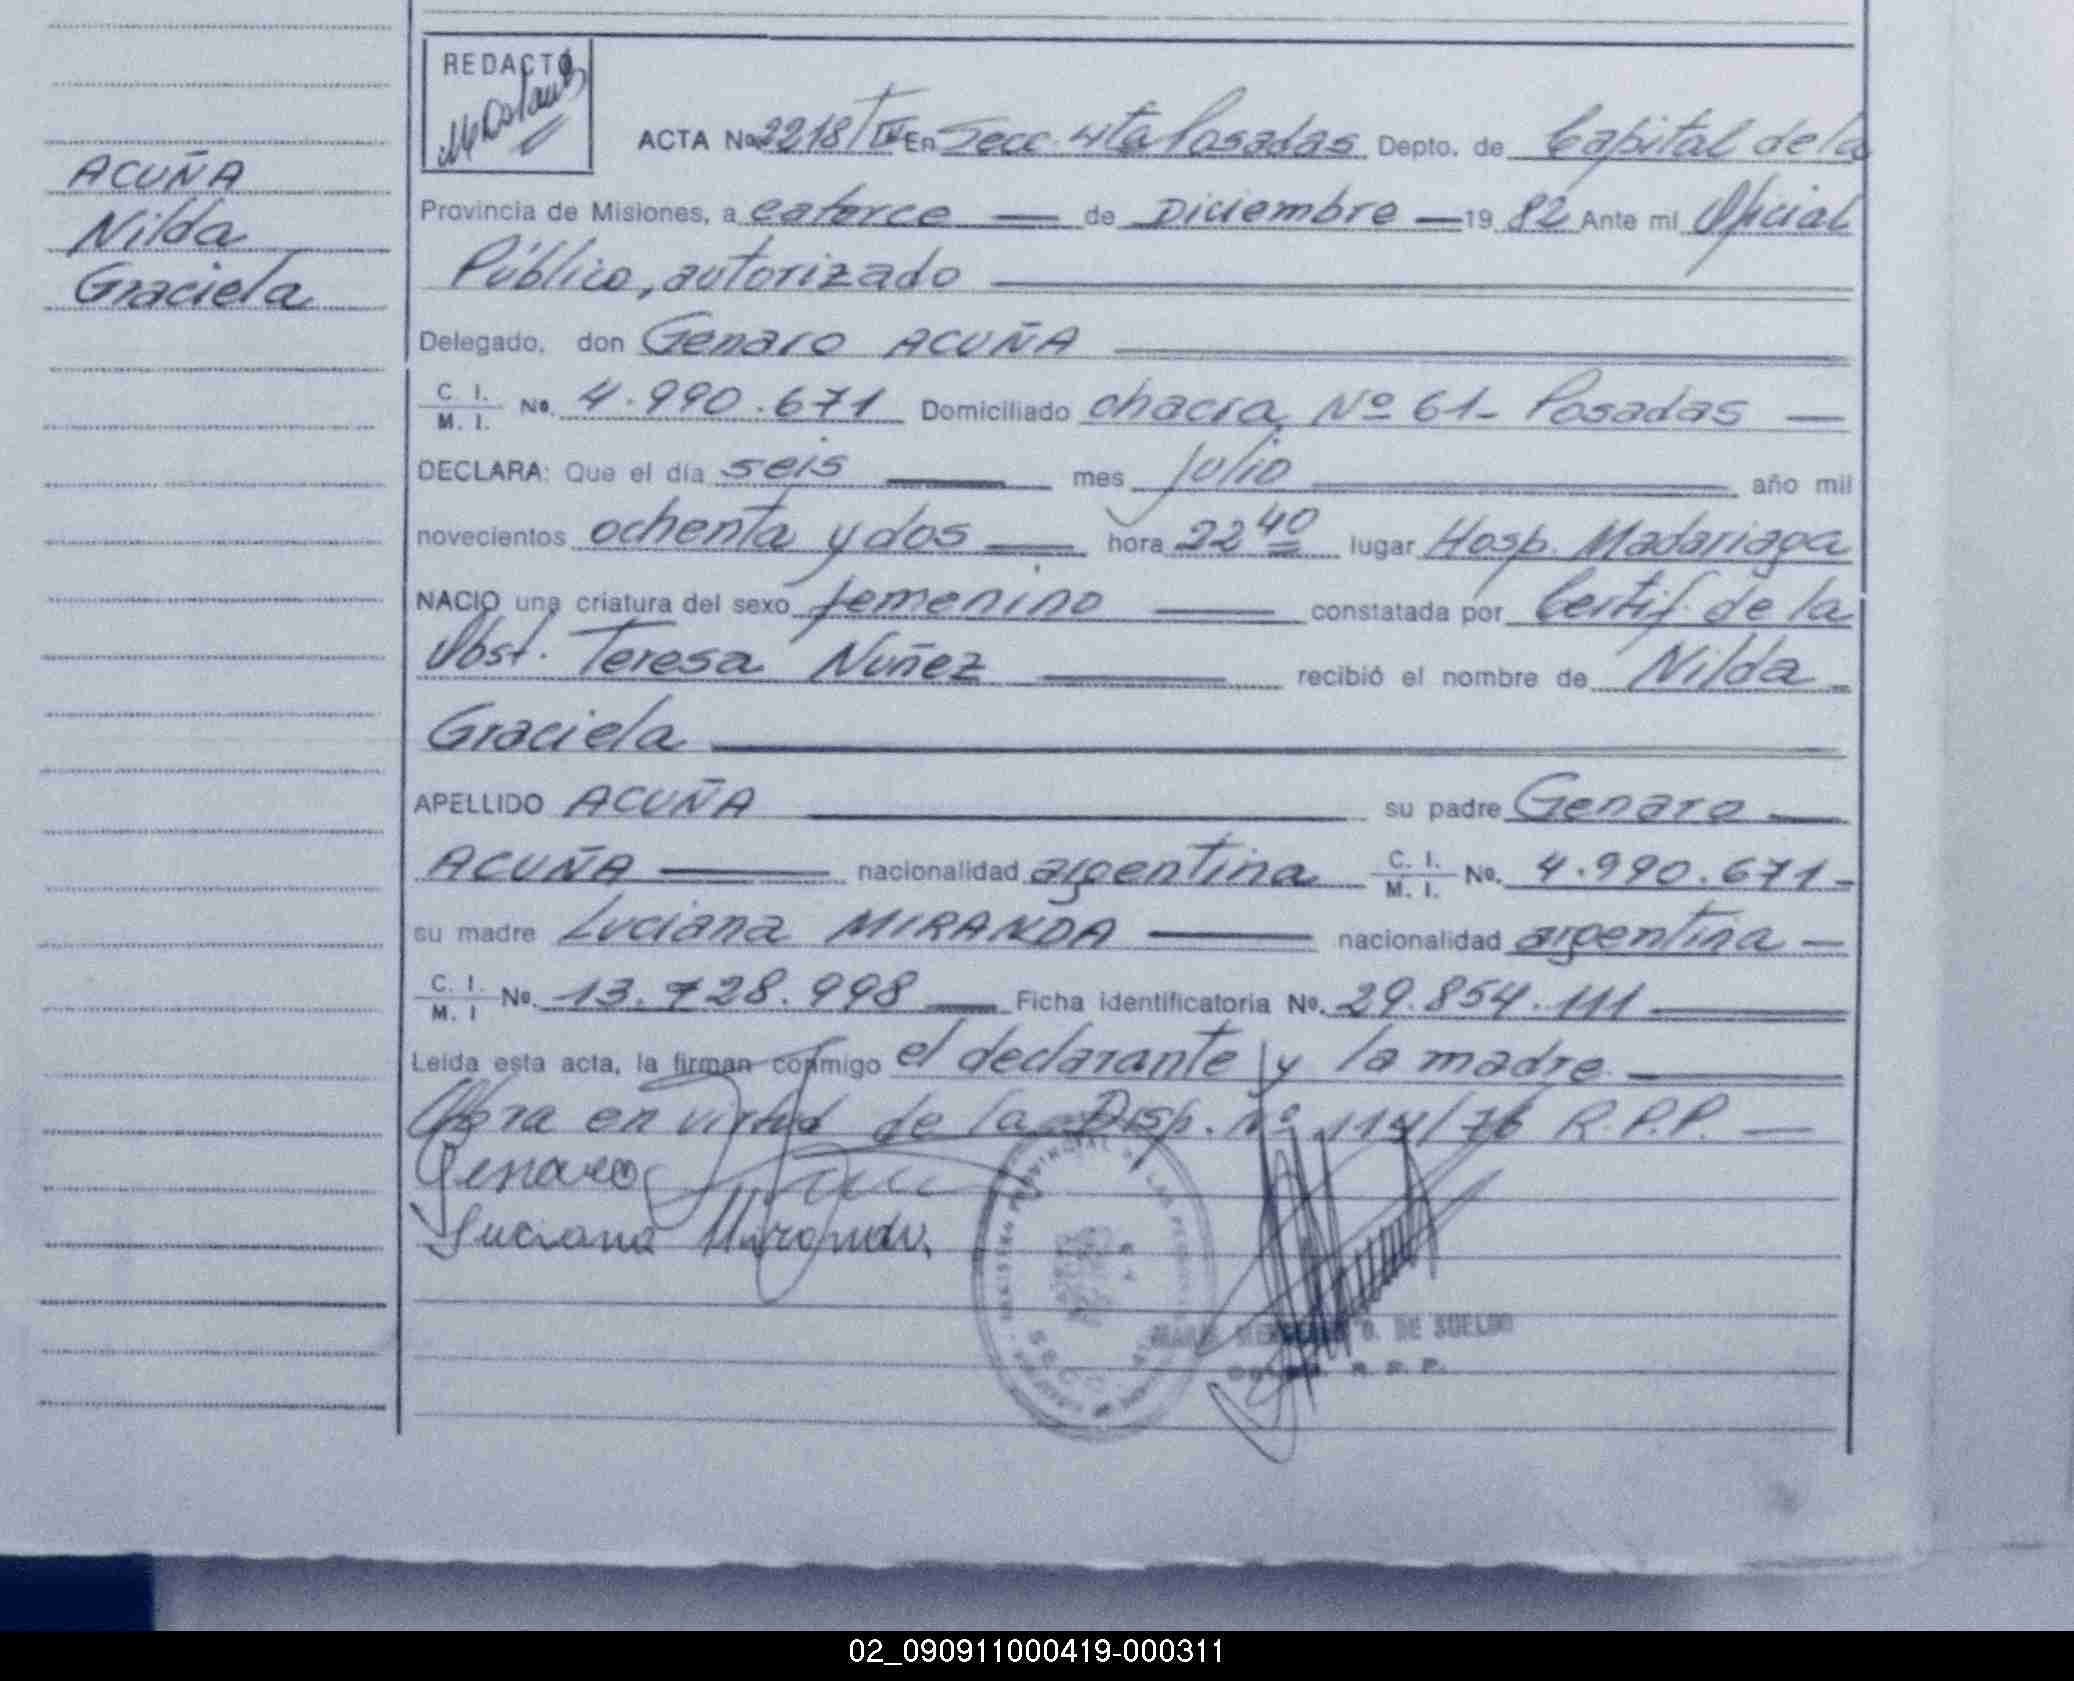 REDACTÓ
ACUÑA
Nilda
Graciela
ACTA No 2218/IV En Secc. 4ta Posadas Depto. de Capital de la
Provincia de Misiones, a catorce de Diciembre 19 82 Ante mí Oficial
Público, autorizado
Delegado, don Genaro ACUÑA
C. I. / M. I. No. 4.990.671 Domiciliado chacra Nº 61- Posadas
DECLARA: Que el día seis mes julio año mil
novecientos ochenta y dos hora 22 40 lugar Hosp. Madariaga
NACIO una criatura del sexo femenino constatada por Certif. de la
Obst. Teresa Nuñez recibió el nombre de Nilda
Graciela
APELLIDO ACUÑA su padre Genaro
ACUÑA nacionalidad argentina C. I. / M. I. No. 4.990.671-
su madre Luciana MIRANDA nacionalidad argentina
C. I. / M. I No. 13.728.998 Ficha identificatoria No. 29.854.111
Leída esta acta, la firman conmigo el declarante y la madre
Obra en virtud de la Disp. nº 114/76 R.P.P.
Genaro
Luciana Miranda
DE SUELDO
R. P. P.
02_090911000419-000311